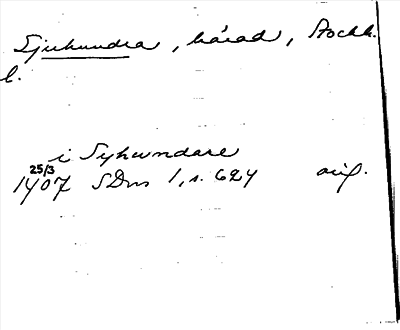 Sjuhundra, härad, Stockh.
l.
i Syhwndare
25/3
1407 SDns 1, s. 624 orig.